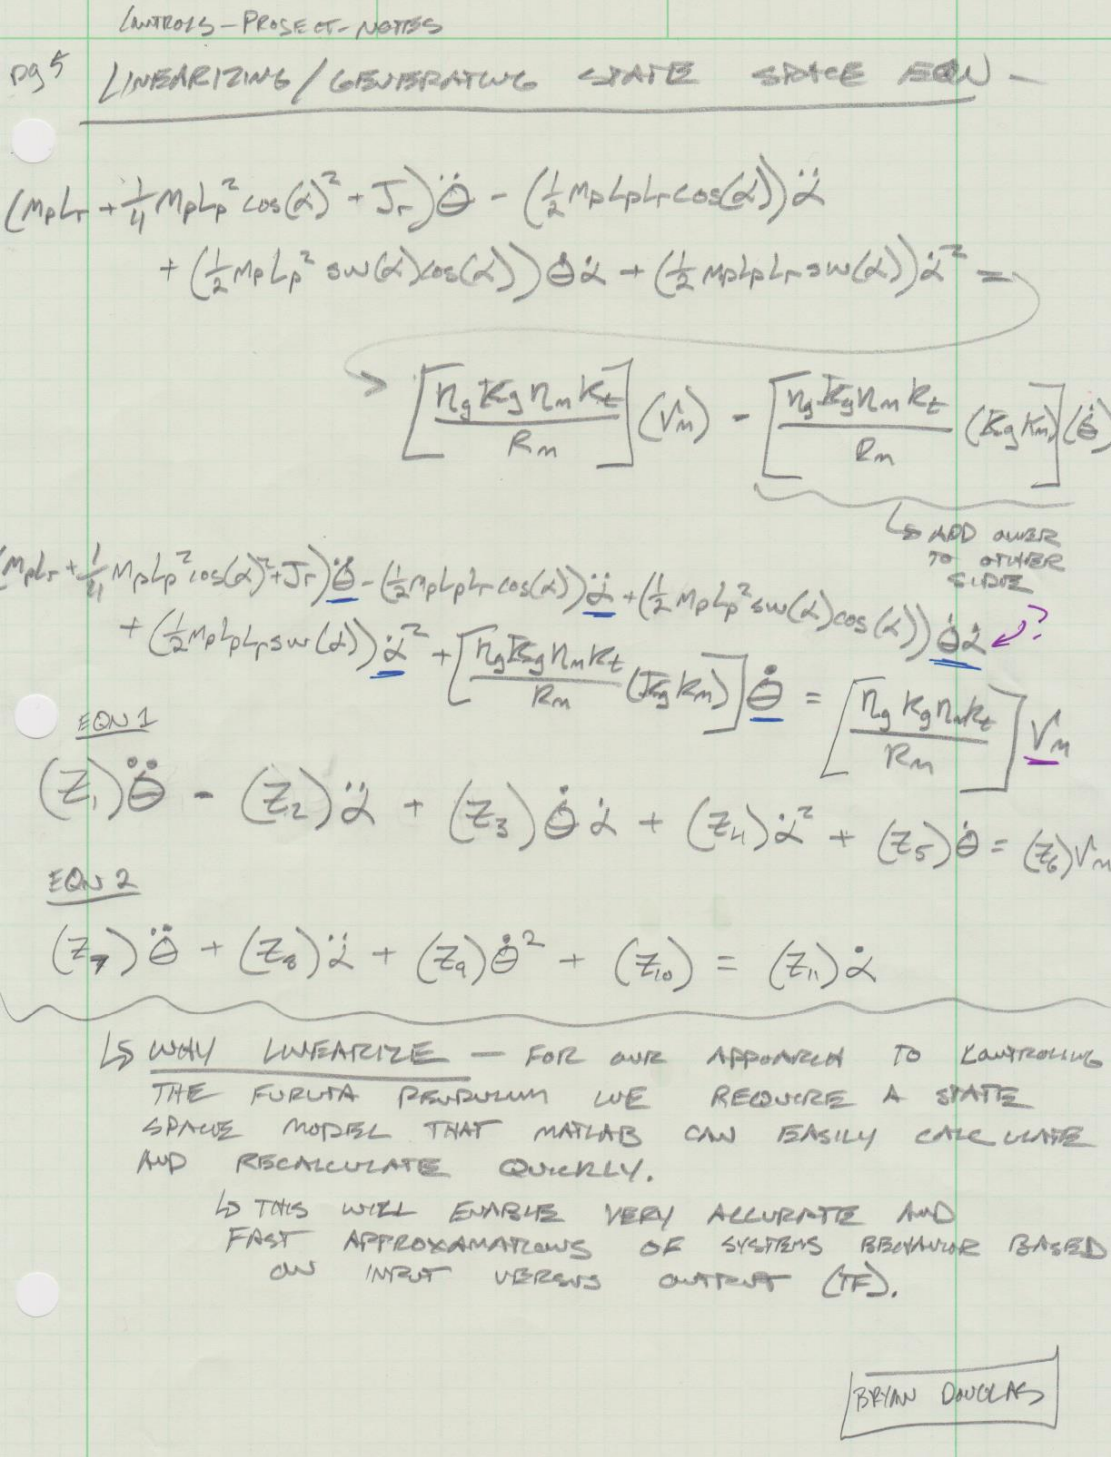 CONTROLS-PROJECT-NOTES
pg 5 LINEARIZING/GENERATING STATE SPACE EQN -
(MpLr + 1/4 MpLp² cos(α)² + Jr)θ̈ - (1/2 MpLpLr cos(α))α̈
+ (1/2 MpLp² sin(α)cos(α))θ̇α̇ + (1/2 MpLpLr sin(α))α̇² =
→ [ηg Kg ηm kt / Rm](Vm) - [ηg Kg ηm kt / Rm (Kg Km)](θ̇)
↳ ADD OVER
TO OTHER
SIDE
(MpLr + 1/4 MpLp² cos(α)² + Jr)θ̈ - (1/2 MpLpLr cos(α))α̈ + (1/2 MpLp² sin(α)cos(α))θ̇α̇ ?
+ (1/2 MpLpLr sin(α))α̇² + [ηg Kg ηm kt / Rm (Kg km)]θ̇ = [ηg Kg ηm kt / Rm]Vm
EQN 1
(Z₁)θ̈ - (Z₂)α̈ + (Z₃)θ̇α̇ + (Z₄)α̇² + (Z₅)θ̇ = (Z₆)Vm
EQN 2
(Z₇)θ̈ + (Z₈)α̈ + (Z₉)θ̇² + (Z₁₀) = (Z₁₁)α̇
↳ WHY LINEARIZE - FOR OUR APPOARCH TO KONTROLING
THE FURUTA PENDULUM WE REQUIRE A STATE
SPACE MODEL THAT MATLAB CAN EASILY CALCULATE
AND RECALCULATE QUICKLY.
↳ THIS WILL ENABLE VERY ACCURATE AND
FAST APPROXAMATIONS OF SYSTEMS BEHAVIOR BASED
ON INPUT VERSUS OUTPUT (TF).
BRYAN DOUGLAS